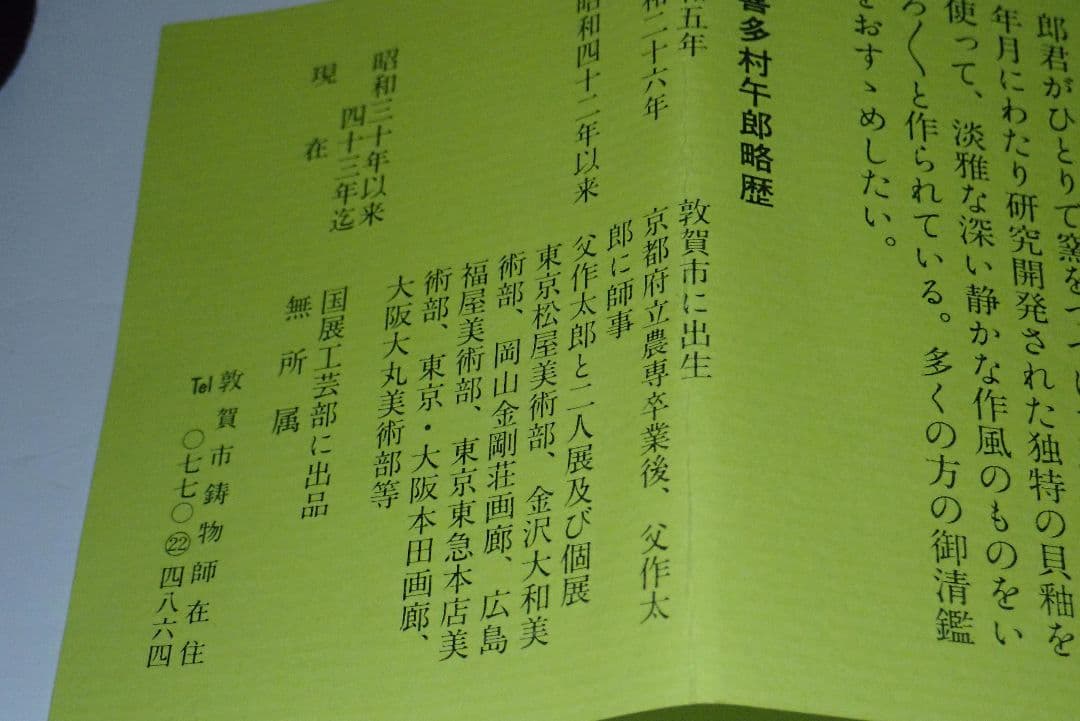 郎君がひとりで窯を
年月にわたり研究開発された独特の貝釉を
使って、淡雅な深い静かな作風のものをい
ろ〳〵と作られている。多くの方の御清鑑
をおすゝめしたい。
喜多村午郎略歴
五年 敦賀市に出生
和二十六年 京都府立農専卒業後、父作太
郎に師事
昭和四十二年以来 父作太郎と二人展及び個展
東京松屋美術部、金沢大和美
術部、岡山金剛荘画廊、広島
福屋美術部、東京東急本店美
術部、東京・大阪本田画廊、
大阪大丸美術部等
昭和三十年以来
四十三年迄 国展工芸部に出品
現在 無所属
敦賀市鋳物師在住
Tel 〇七七〇㉒四八六四